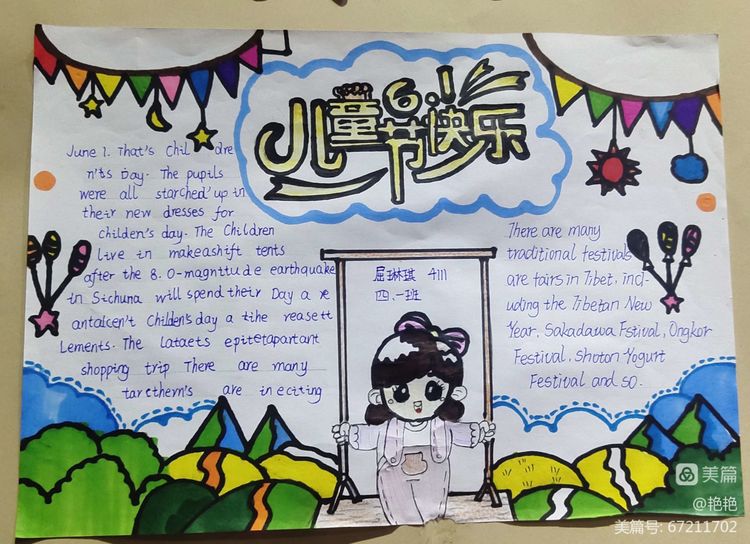 6.1
儿童节快乐
June 1. That's Chil dre
n'ts Day. The pupils
were all starched up in
their new dresses for
childen's day. The Children
live in makeashift tents
after the 8.0-magnitude earthquake
in Sichuna will spend their Day a re
antalcen't Childen's day a tihe reasett
Lements. The Lataets epitetapartant
shopping trip There are many
tarcthern's are in eciting
屈琳琪 4111
四.一班
There are many
traditional festivals
are fairs in Tibet, incl-
uding the Tibetan New
Year, Sakadawa Fstival, Ongkor
Festival, Shoton Yogurt
Festival and so.
美篇
@艳艳
美篇号: 67211702